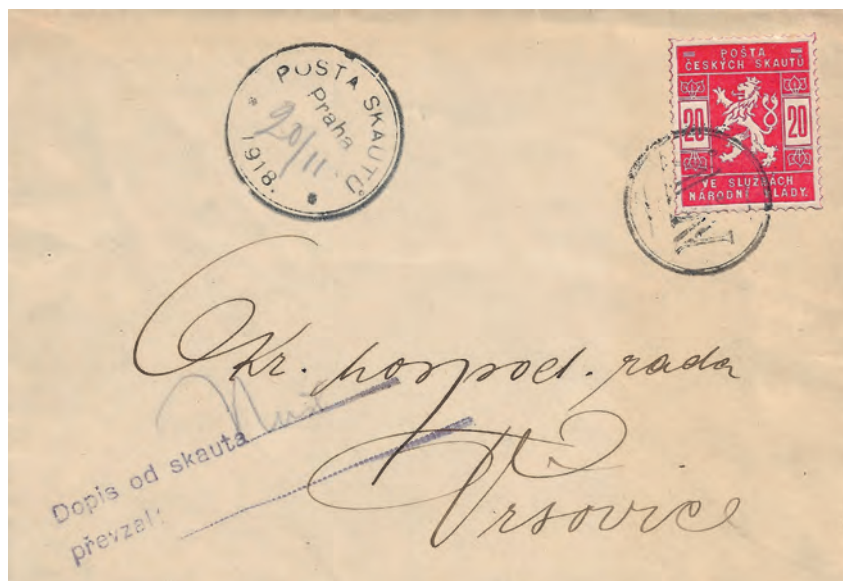 POŠTA SKAUTŮ
Praha
20/11.
1918.
POŠTA
ČESKÝCH SKAUTŮ
20 20
VE SLUŽBÁCH
NÁRODNÍ VLÁDY.
Okr. hospod. rada
Vrsovice
Dopis od skauta
převzal: